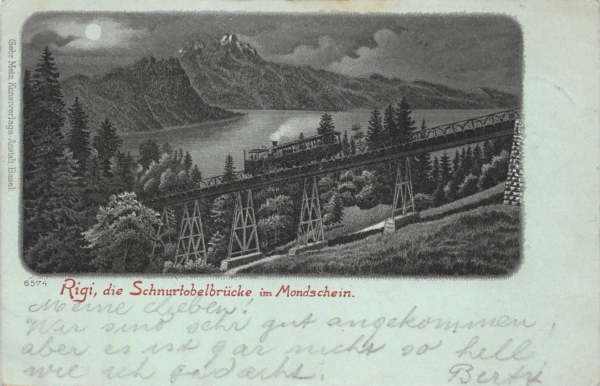 Gebr. Metz, Kunstverlags-Anstalt Basel.
6574
Rigi, die Schnurtobelbrücke im Mondschein.
Meine Lieben!
Wir sind sehr gut angekommen,
aber es ist gar nicht so hell
wie ich gedacht.